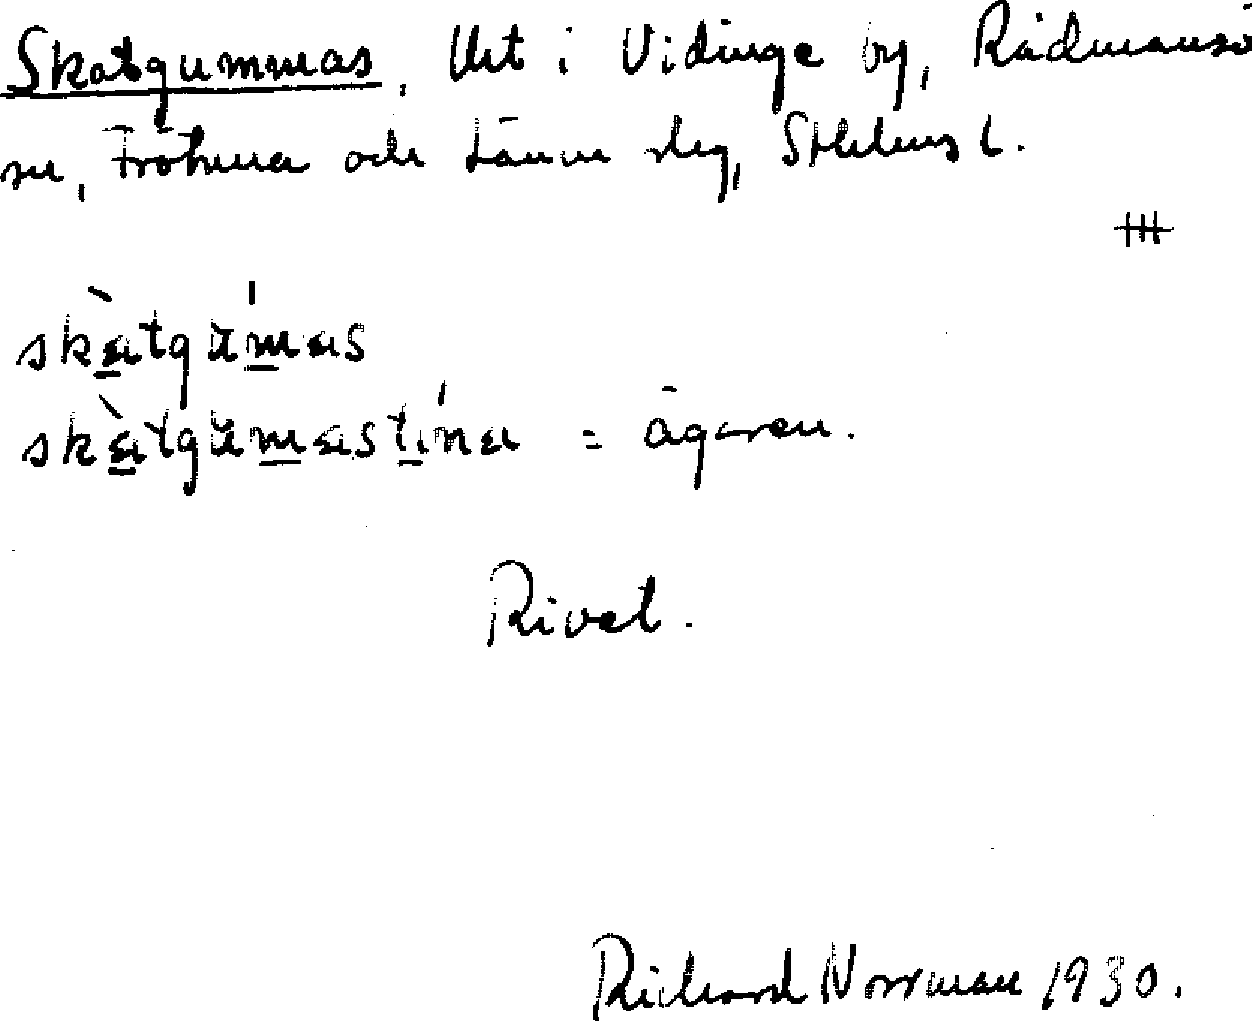 Skatgummas. Urt i Vidinge by, Rådmansö
sn, Frötuna och Länna slg, Sthlms l.
skàtgŭ́mas
skàtgŭmastína = ägaren.
Rivet.
Richard Norrman 1930.